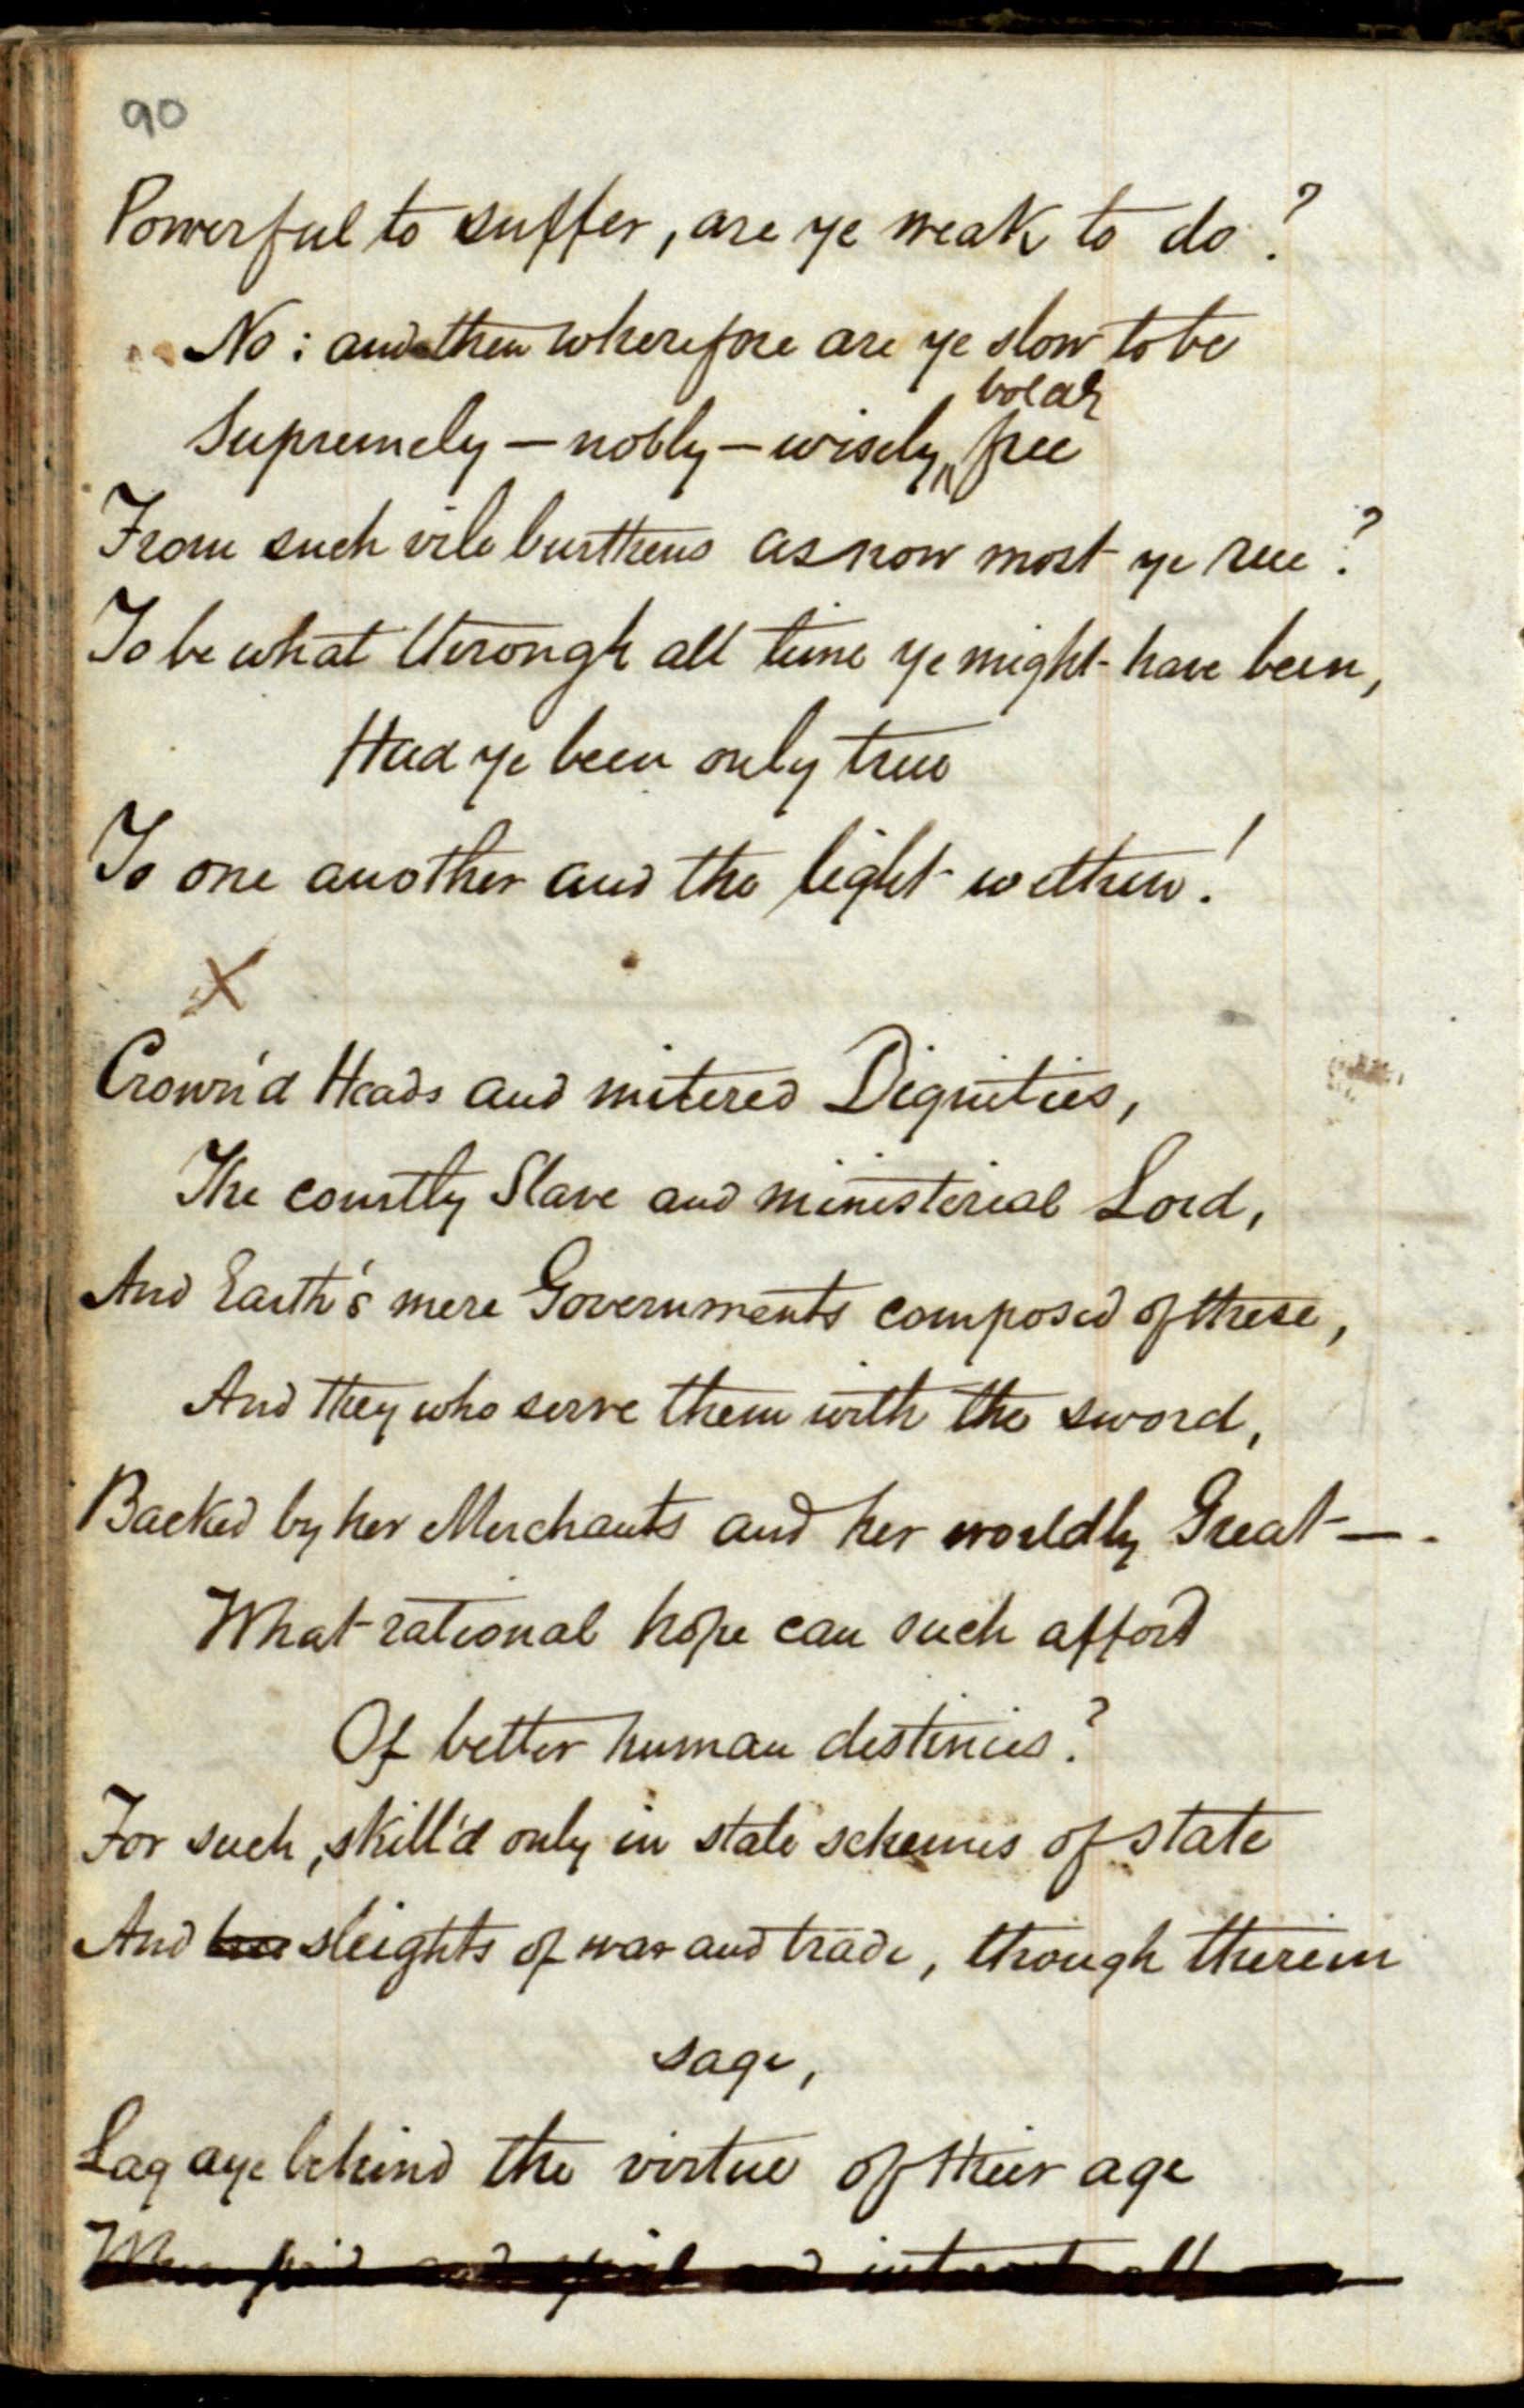 90
Powerful to suffer, are ye weak to do?
No: and then wherefore are ye slow to be
Supremely — nobly — wisely free
From such vile burthens as now most ye rue?
To be what through all time ye might have been,
Had ye been only true
To one another and the light within!
X
Crown'd Heads and mitered Dignities,
The courtly Slave and ministerial Lord,
And Earth's mere Governments composed of these,
And they who serve them with the sword,
Backed by her Merchants and her worldly Great —.
What rational hope can such afford
Of better human destinies?
For such, skill'd only in stale schemes of state
And sleights of war and trade, though therein
sage,
Lag aye behind the virtue of their age